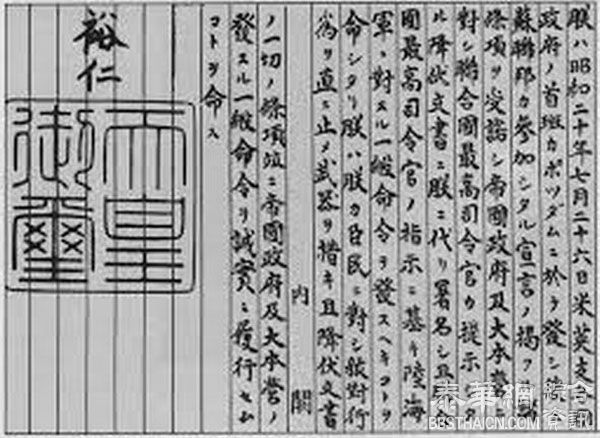 朕ハ昭和二十年七月二十六日米英支
政府ノ首班カポツダムニ於テ發シ後
蘇聯邦カ参加シタル宣言ノ掲クル
條項ヲ受諾シ帝國政府及大本營ニ
對シ聯合國最高司令官カ提示シタ
ル降伏文書ニ朕ニ代リ署名シ且
國最高司令官ノ指示ニ基キ陸海
軍ニ對スル一般命令ヲ發スヘキコトヲ
命シタリ朕ハ朕カ臣民ニ對シ敵對行
爲ヲ直ニ止メ武器ヲ措キ且降伏文書
内閣
ノ一切ノ條項竝ニ帝國政府及大本營ノ
發スル一般命令ヲ誠實ニ履行セム
コトヲ命ス
裕仁
天皇
御璽
泰華網 綜合資訊
BBSTHAICN.COM